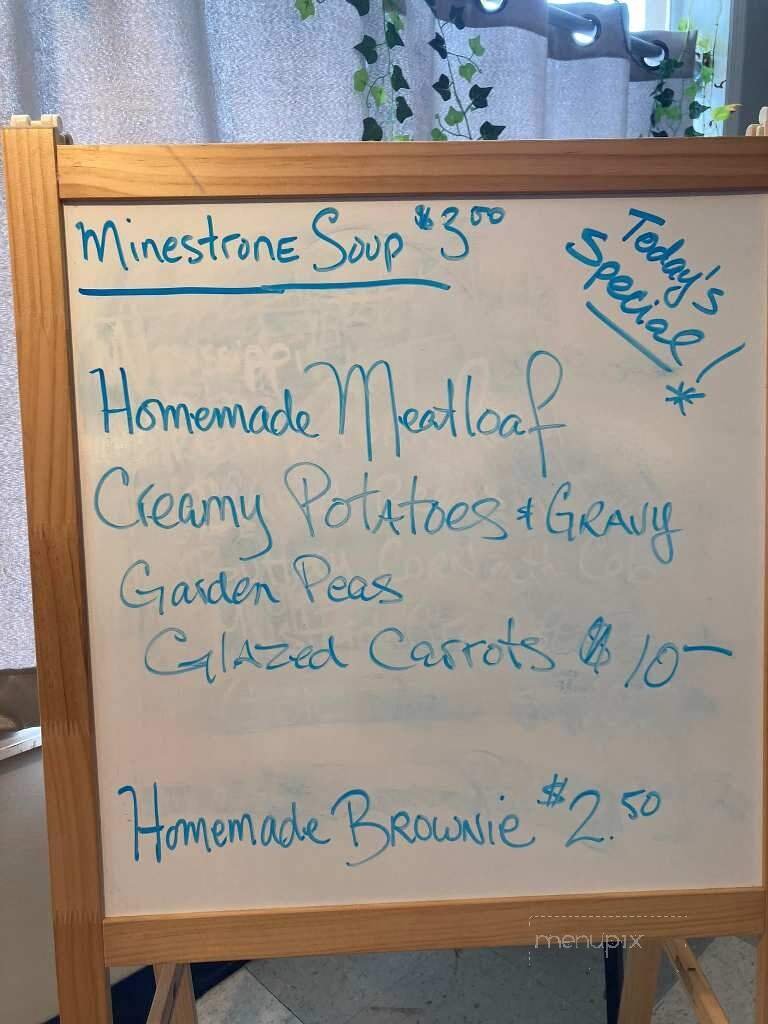 Minestrone Soup $3.00
Today's
Special!
*
Homemade Meatloaf
Creamy Potatoes & Gravy
Garden Peas
Glazed Carrots $10—
Homemade Brownie $2.50
menupix